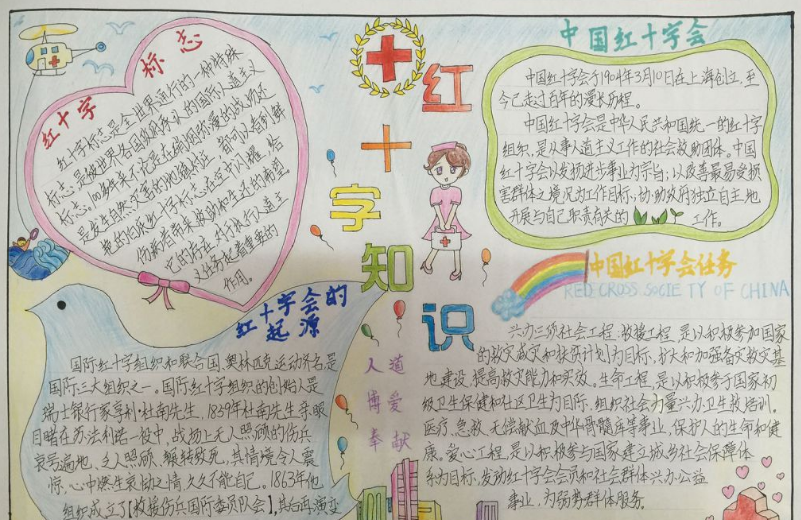 红十字标志
红十字标志是全世界通行的一种特殊
标志,是被世界各国政府承认的国际人道主义
标志。100多年来不论是在硝烟弥漫的战场还
是发生自然灾害的地德
地的旧战红十字标志在空中闪耀,给
伤病者带来救助和生还的希望。
它的特征,对执行人道主
义任务起着重要的
作用。
红十字知识
人道
博爱
奉献
中国红十字会
中国红十字会于1904年3月10日在上海创立,至
今已走过百年的漫长历程。
中国红十字会是中华人民共和国统一的红十字
组织,是从事人道主义工作的社会救助团体。中国
红十字会以发扬进步事业为宗旨;以改善最易受损
害群体之境况为工作目标,协助政府独立自主地
开展与自己职责有关的工作。
红十字会的
起源
国际红十字组织和联合国、奥林匹克运动齐名,是
国际三大组织之一。国际红十字组织的创始人是
瑞士银行家亨利·杜南先生,1859年杜南先生亲眼
目睹在苏法利
战场上无人照顾的伤兵
哀号遍地、乏人照顾、辗转致死,其情境令人震
惊,心中
哀恸之情久久不能自己。1863年他
组织成立了【救援伤兵国际委员队会】,其后再演变
中国红十字会任务
RED CROSS SOCIETY OF CHINA
兴办三项社会工程。救援工程,是以积极参加国家
的救灾减灾和扶贫计划为目标,扩大和加强备灾救灾基
地建设,提高救灾能力和实效。生命工程,是以积极参于国家初
级卫生保健和社区卫生为目标,组织社会力量兴办卫生救培训。
医疗急救,无偿献血及中华骨髓库等事业,保护人的生命和健
康。爱心工程,是以积极参与国家建立城乡社会保障体
系为目标,发动红十字会会员和社会群体兴办公益
事业,为弱势群体服务。